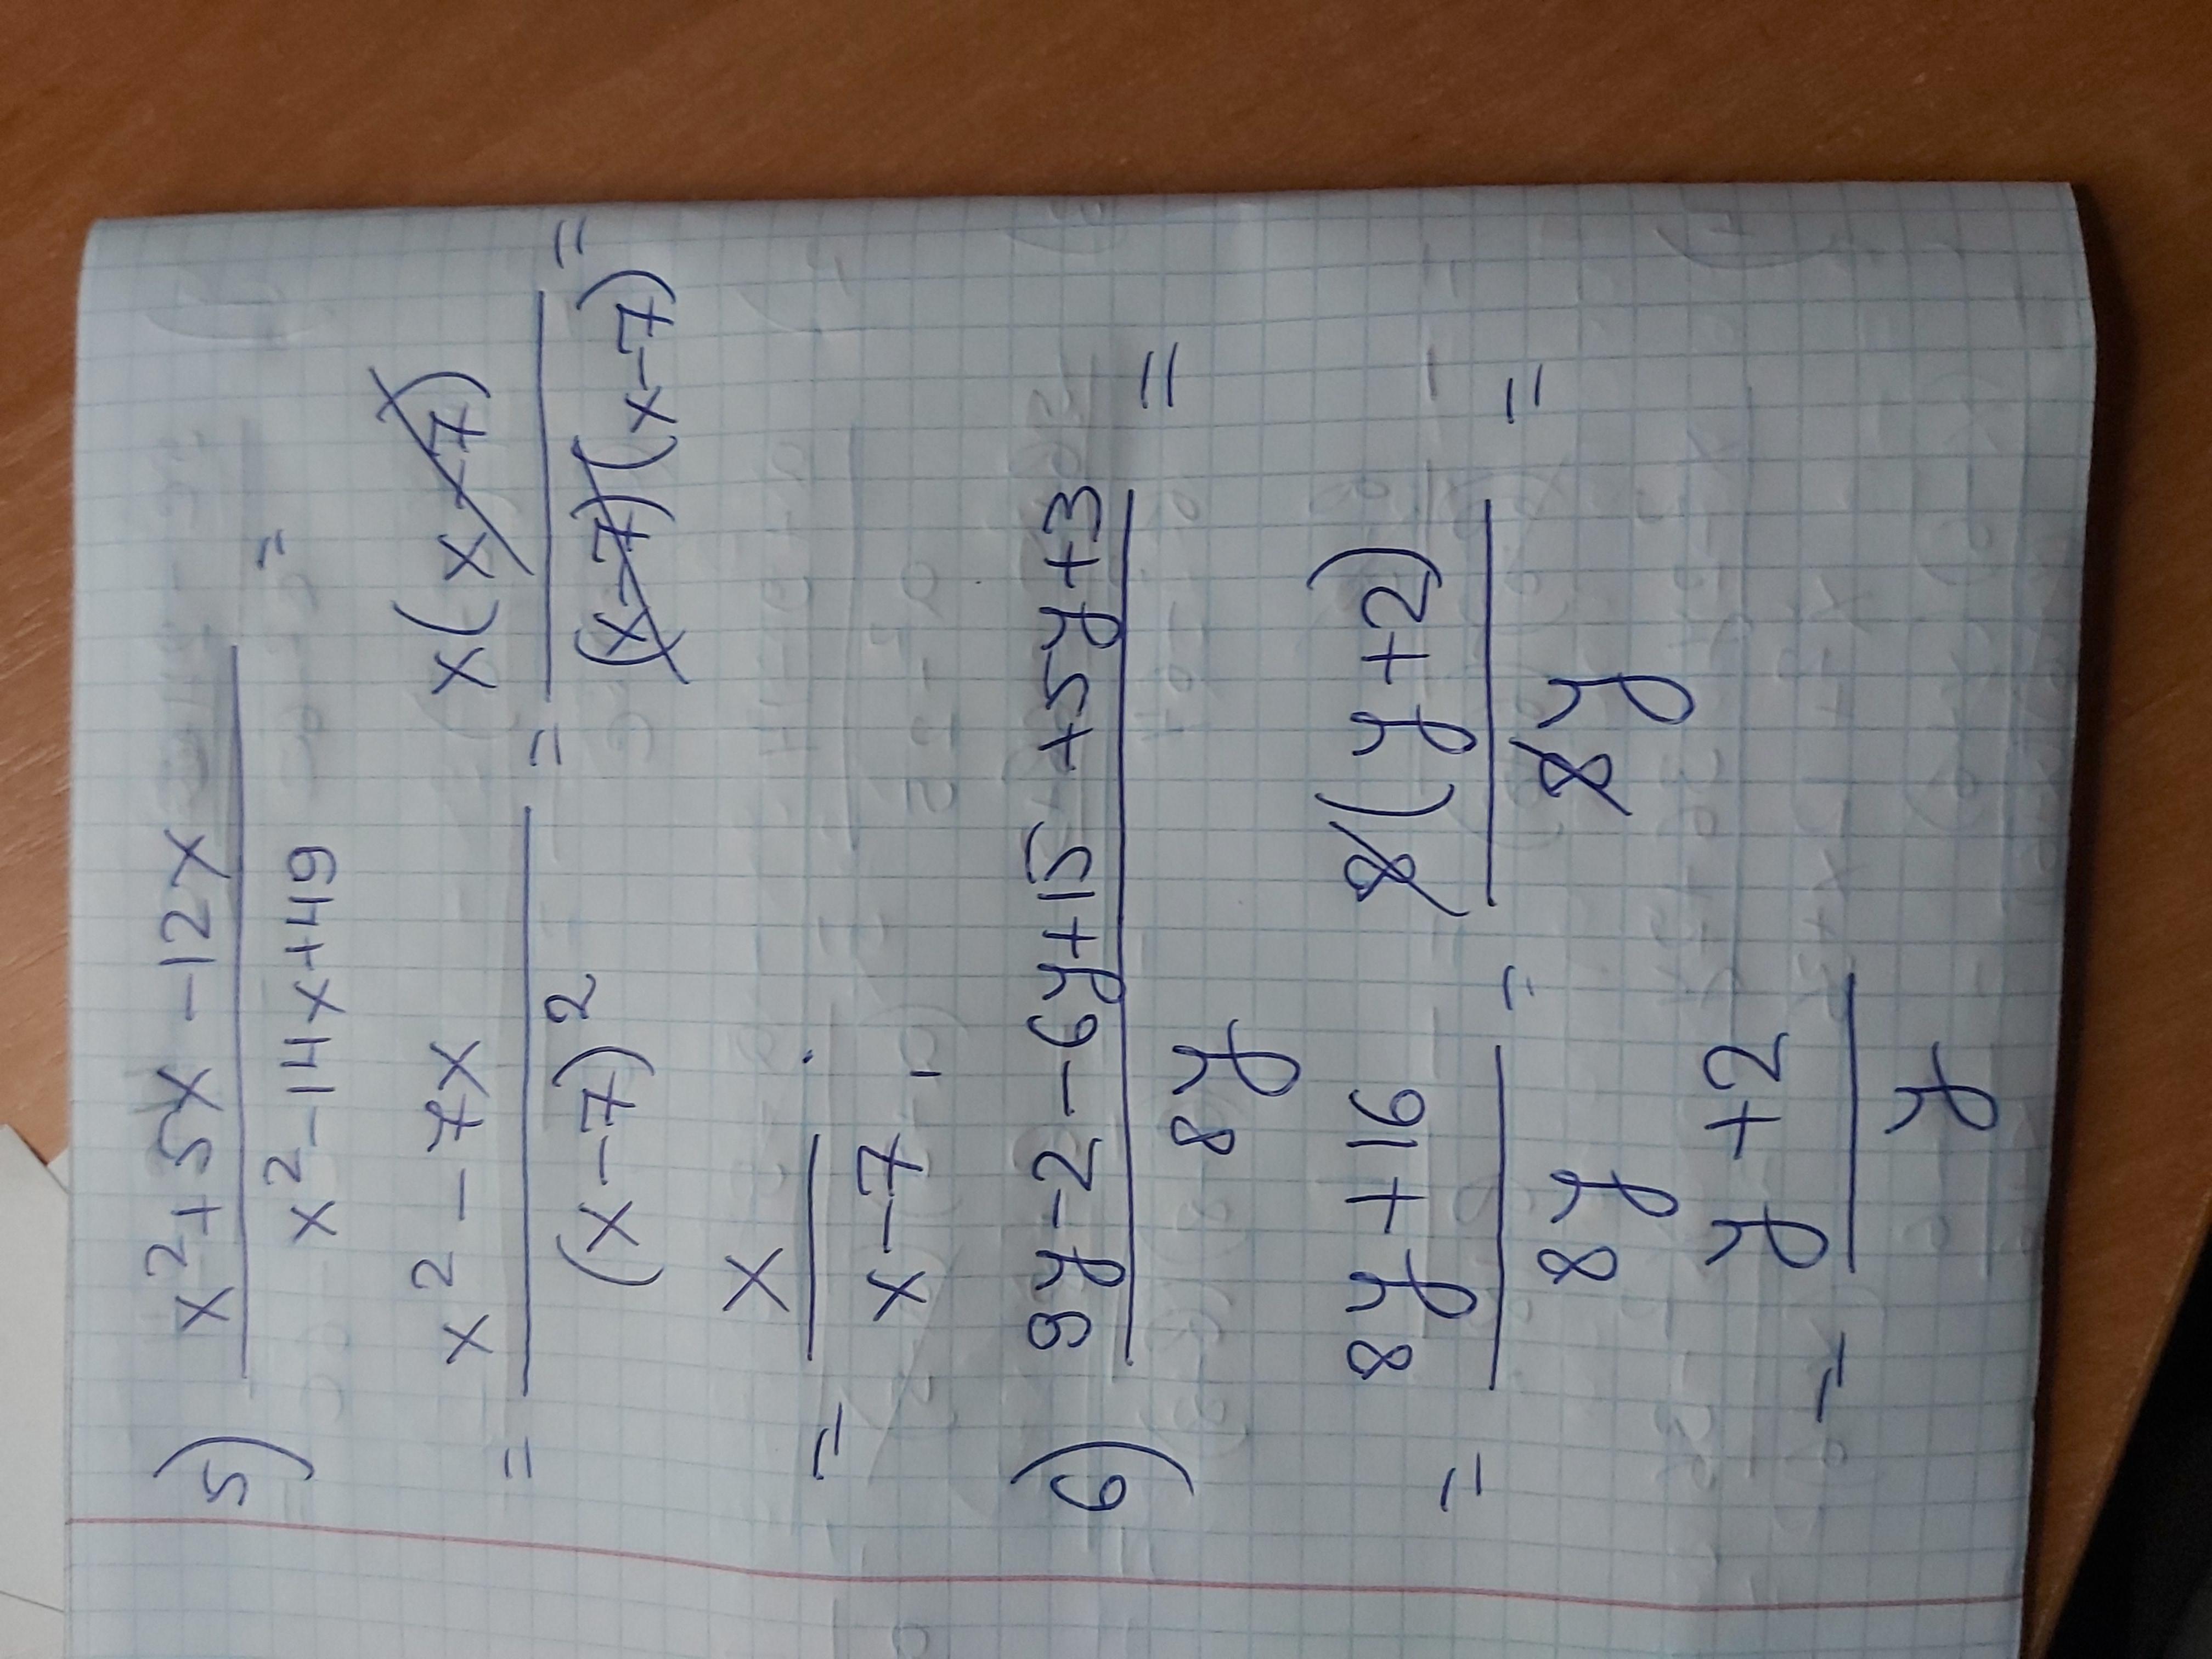 5) x²+5x-12x
x²-14x+49 =
= x²-7x = x(x-7)
(x-7)² (x-7)(x-7) =
= x
x-7
6) 9y-2-6y+15+5y+3 =
8y
= 8y+16 = 8(y+2) =
8y 8y
= y+2
y